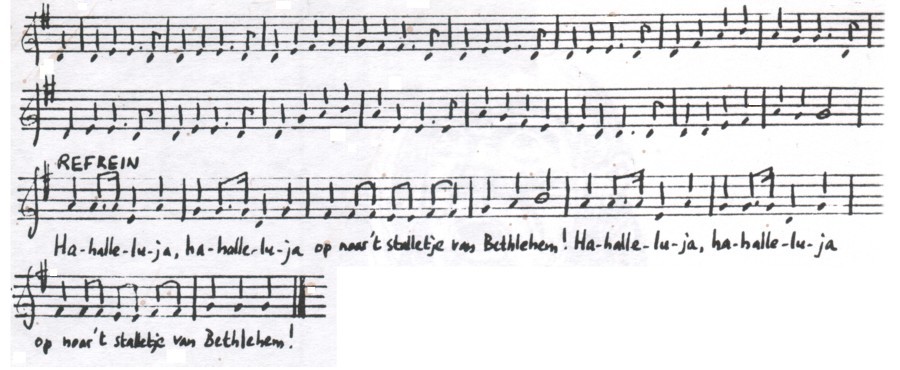 REFREIN
Ha-halle-lu-ja, ha-halle-lu-ja op naar't stalletje van Bethlehem! Ha-halle-lu-ja, ha-halle-lu-ja
op naar't stalletje van Bethlehem!